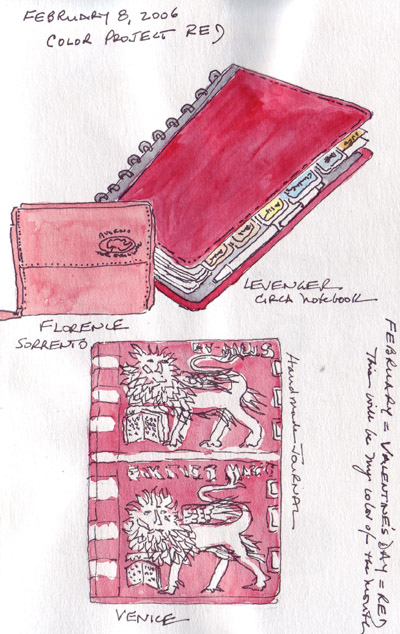 FEBRUARY 8, 2006
COLOR PROJECT RED
LEVENGER
CIRCA Notebook
FLORENCE
SORRENTO
Handmade Journal
VENICE
FEBRUARY = VALENTINE'S DAY = RED
This will be my color of the month